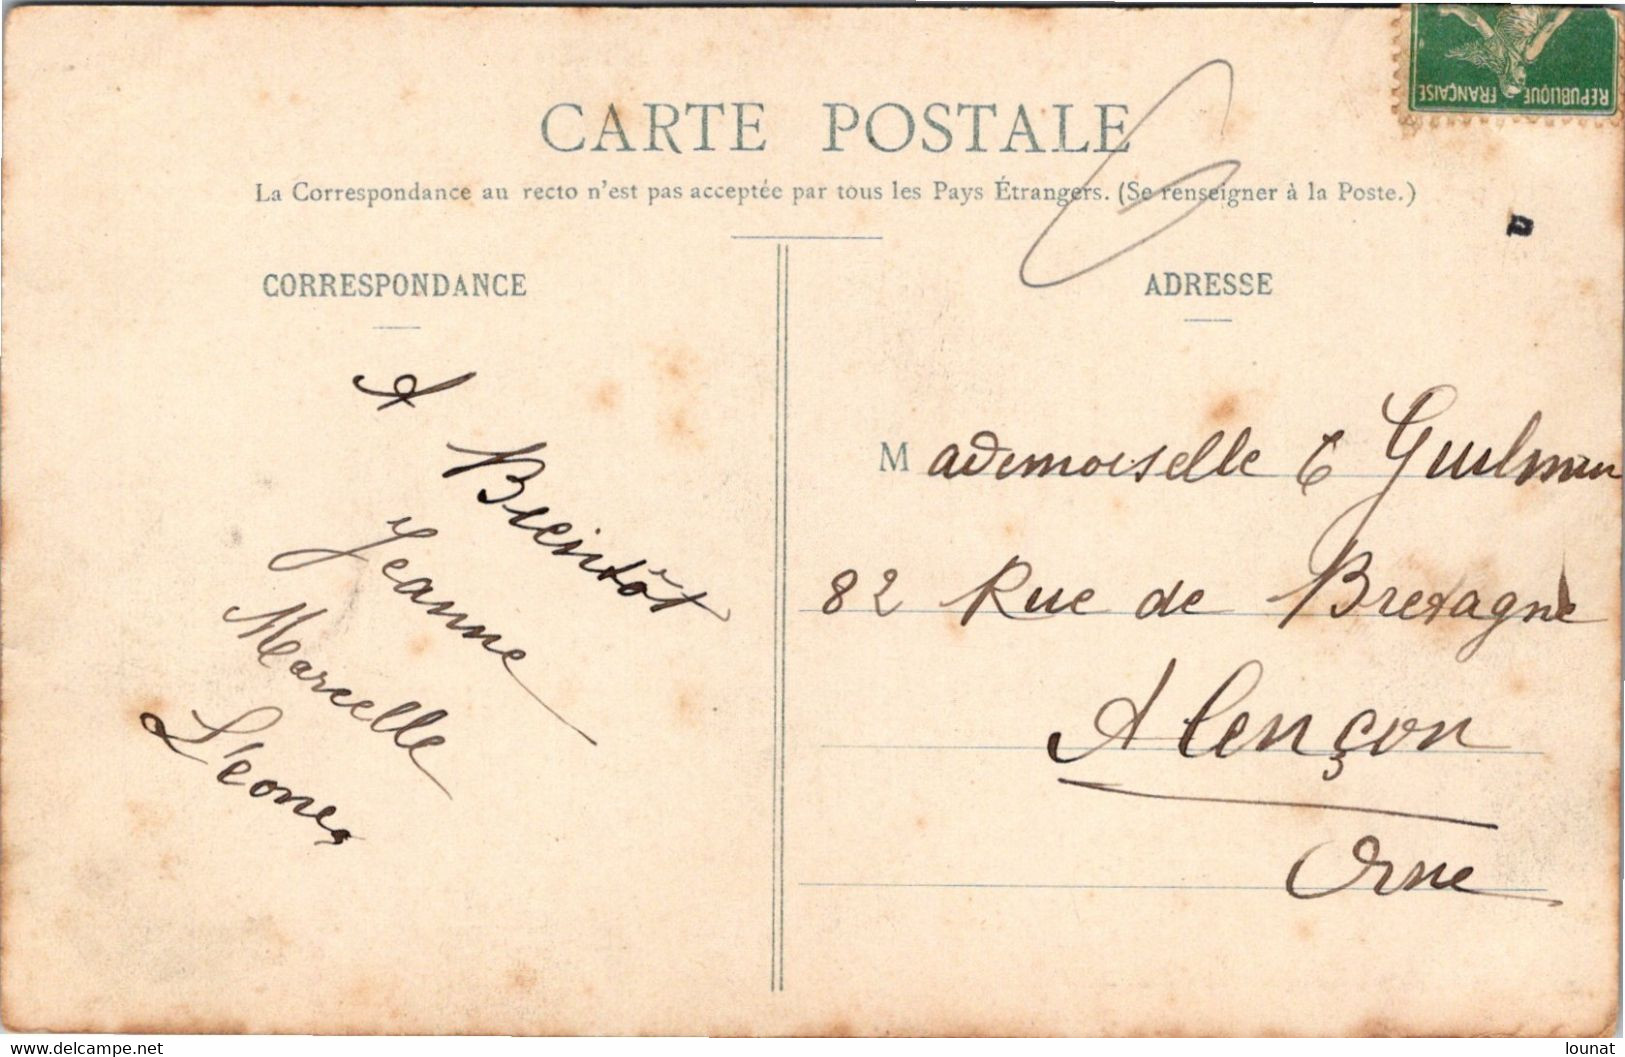 RÉPUBLIQUE FRANÇAISE
CARTE POSTALE
La Correspondance au recto n'est pas acceptée par tous les Pays Étrangers. (Se renseigner à la Poste.)
CORRESPONDANCE
A
Bientôt
Jeanne
Marcelle
Léones
ADRESSE
Mademoiselle G Guilmin
82 Rue de Bretagne
Alençon
Orne
www.delcampe.net
lounat